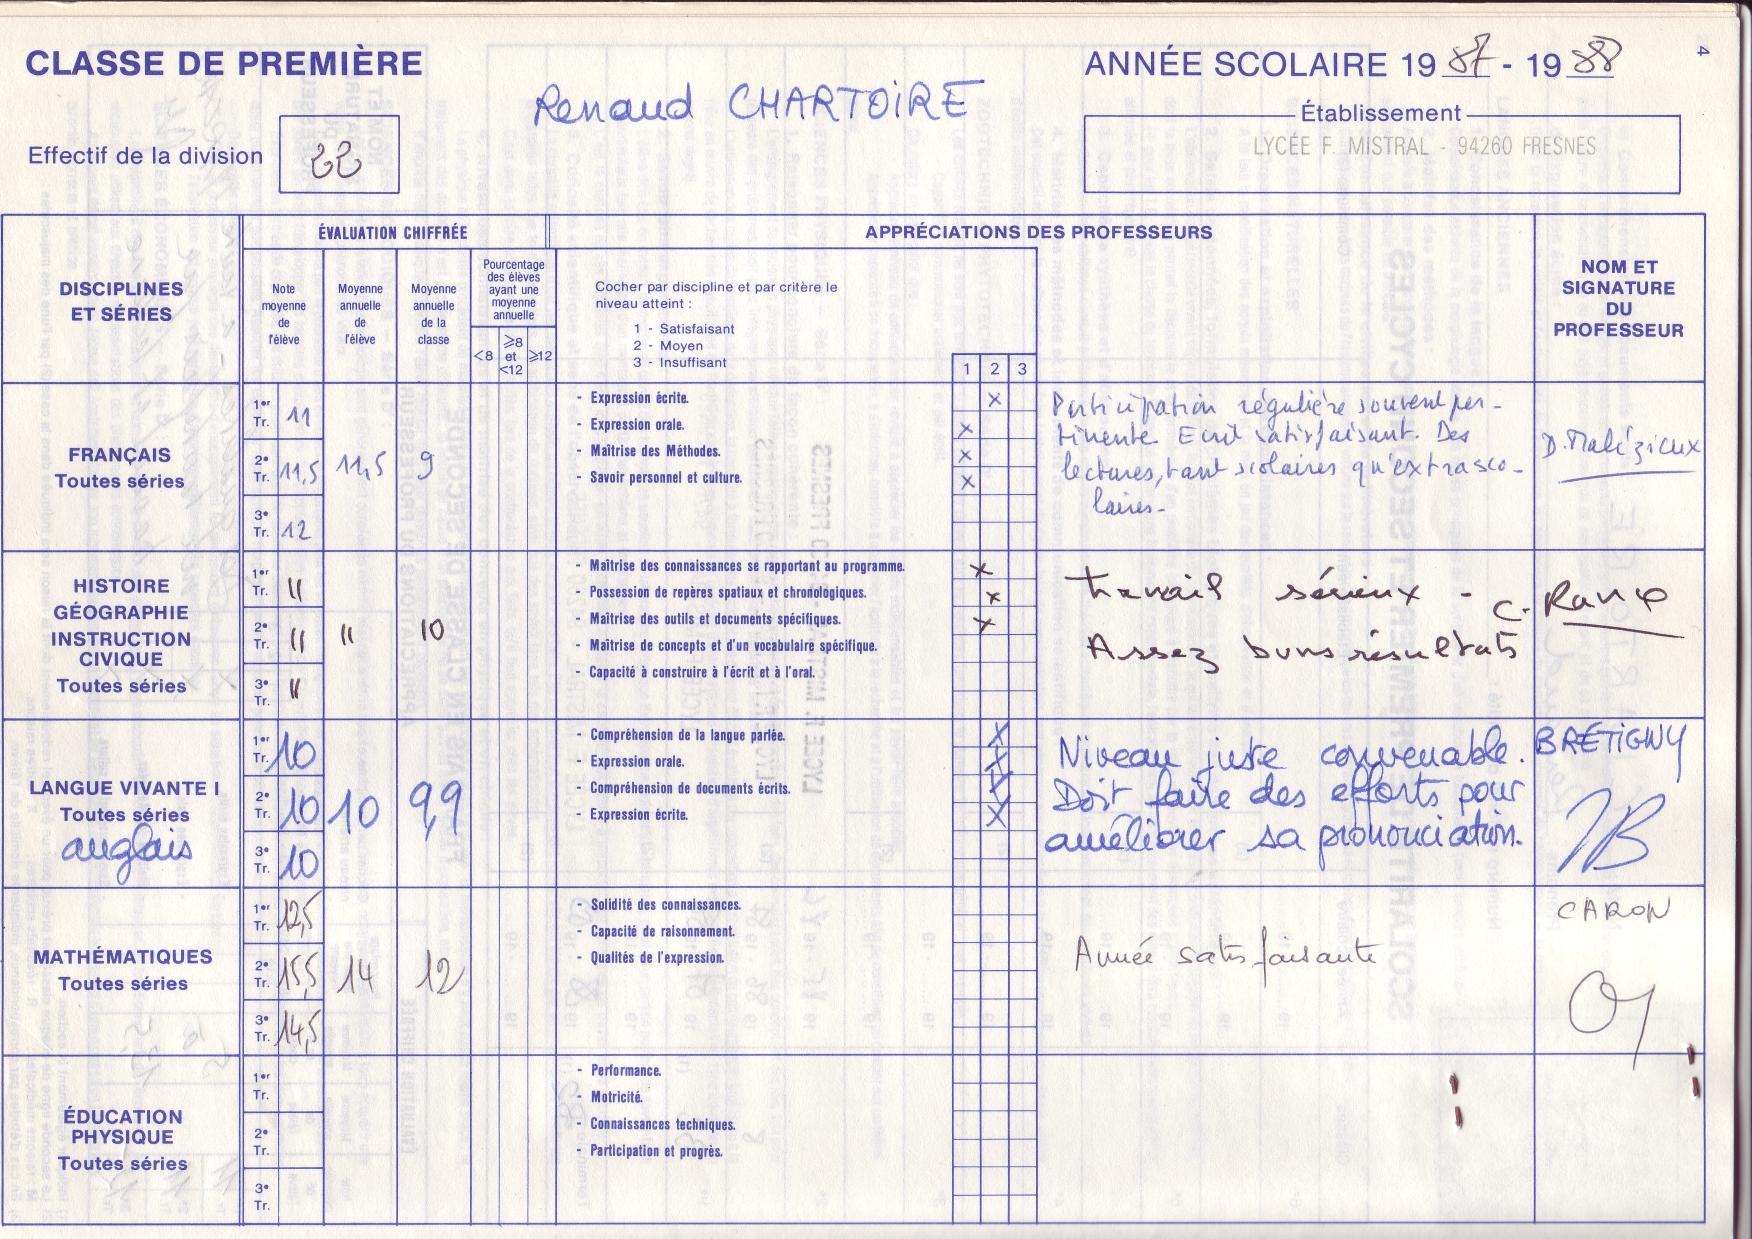 CLASSE DE PREMIÈRE
ANNÉE SCOLAIRE 1987 - 1988
4
Renaud CHARTOIRE
Établissement
LYCÉE F. MISTRAL - 94260 FRESNES
Effectif de la division 22
DISCIPLINES ET SÉRIES
ÉVALUATION CHIFFRÉE
APPRÉCIATIONS DES PROFESSEURS
NOM ET SIGNATURE DU PROFESSEUR
Note moyenne de l'élève
Moyenne annuelle de l'élève
Moyenne annuelle de la classe
Pourcentage des élèves ayant une moyenne annuelle
<8
≥8 et <12
≥12
Cocher par discipline et par critère le
niveau atteint :
1 - Satisfaisant
2 - Moyen
3 - Insuffisant
1 2 3
FRANÇAIS
Toutes séries
1er Tr. 11
2e Tr. 11,5 11,5 9
3e Tr. 12
- Expression écrite. x
- Expression orale. x
- Maîtrise des Méthodes. x
- Savoir personnel et culture. x
Participation régulière souvent per-
tinente. Ecrit satisfaisant. Des
lectures, tant scolaires qu'extrasco-
laires-
D. Malézieux
HISTOIRE
GÉOGRAPHIE
INSTRUCTION
CIVIQUE
Toutes séries
1er Tr. 11
2e Tr. 11 11 10
3e Tr. 11
- Maîtrise des connaissances se rapportant au programme. x
- Possession de repères spatiaux et chronologiques. x
- Maîtrise des outils et documents spécifiques. x
- Maîtrise de concepts et d'un vocabulaire spécifique.
- Capacité à construire à l'écrit et à l'oral.
travail sérieux -
Assez bons résultats
C.
LANGUE VIVANTE I
Toutes séries
anglais
1er Tr. 10
2e Tr. 10 10 9,9
3e Tr. 10
- Compréhension de la langue parlée. x
- Expression orale. x
- Compréhension de documents écrits. x
- Expression écrite. x
Niveau juste convenable.
Doit faire des efforts pour
améliorer sa prononciation.
BRÉTIGNY
JB
MATHÉMATIQUES
Toutes séries
1er Tr. 12,5
2e Tr. 15,5 14 12
3e Tr. 14,5
- Solidité des connaissances.
- Capacité de raisonnement.
- Qualités de l'expression.
Année satisfaisante
CARON
ÉDUCATION
PHYSIQUE
Toutes séries
1er Tr.
2e Tr.
3e Tr.
- Performance.
- Motricité.
- Connaissances techniques.
- Participation et progrès.